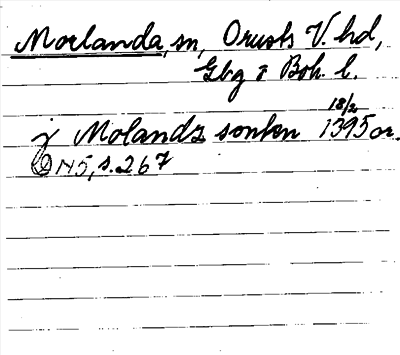 Morlanda, sn, Orusts V. hd,
Gbg o Boh. l.
j Molandz sonken 18/2 1395 or.
DN 5, s. 267